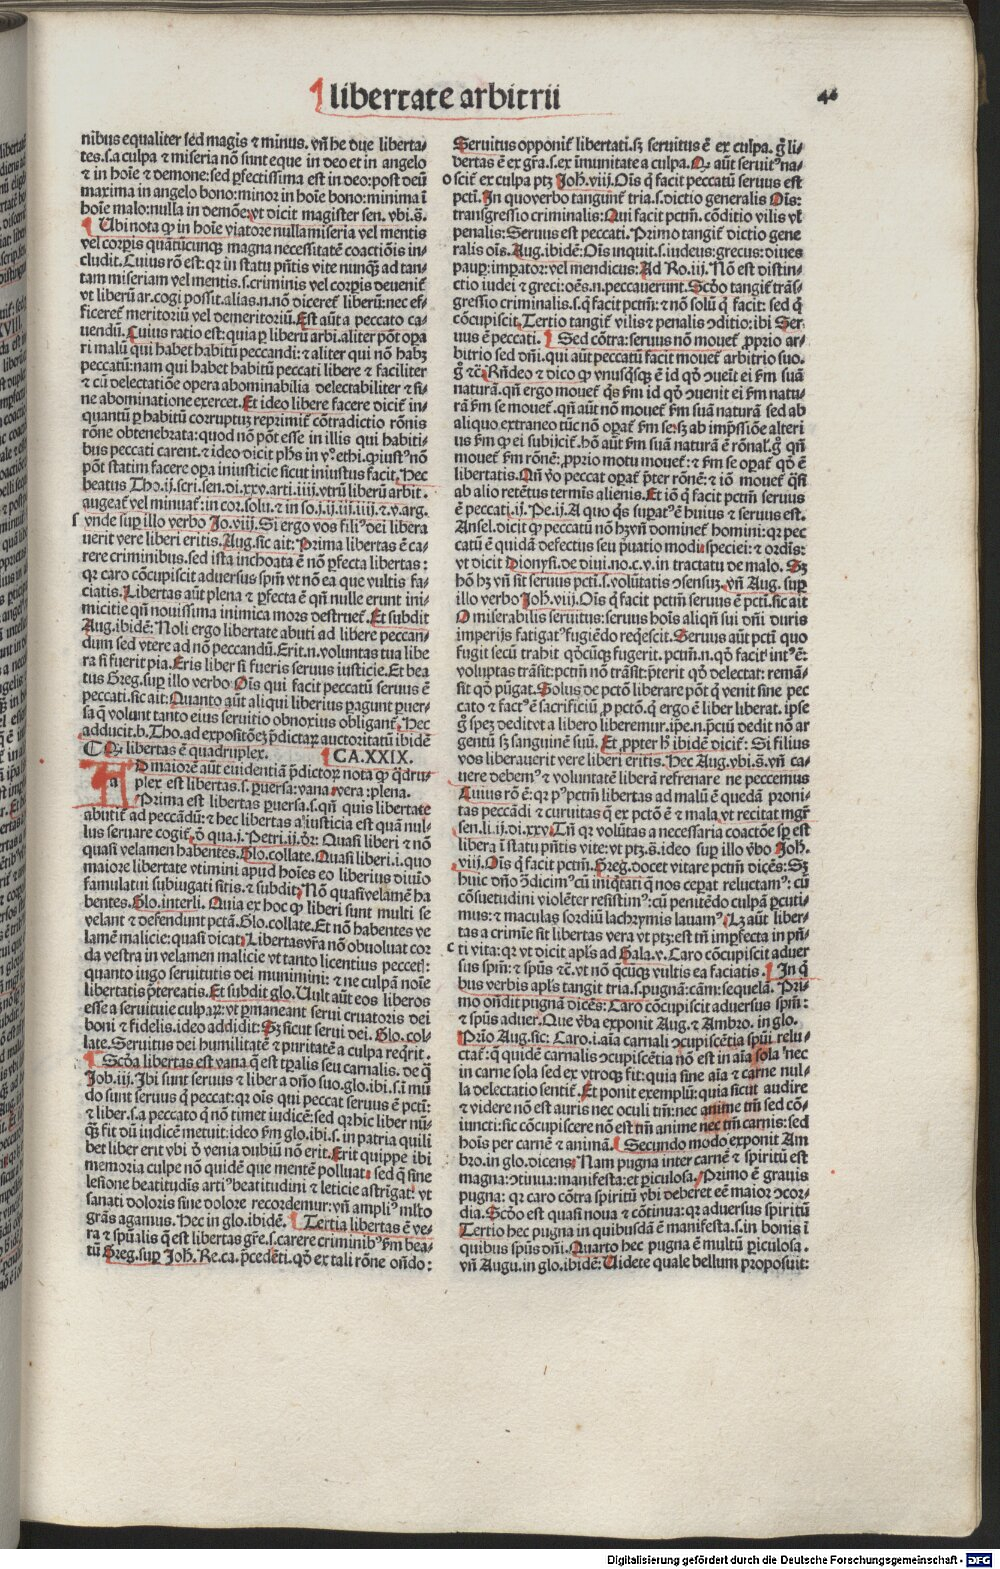 ¶ libertate arbitrii
46
nibus equaliter sed magis ⁊ minus. vn̄ he due liberta-
tes.s.a culpa ⁊ miseria nō sunt eque in deo et in angelo
⁊ in hoīe ⁊ demone: sed ꝑfectissima est in deo: post deū
maxima in angelo bono: minor in hoīe bono: minima ī
hoīe malo: nulla in demōe: vt dicit magister sen. vbi.s̄.
¶ Ubi nota ꝙ in hoīe viatore nulla miseria vel mentis
vel corꝑis quātūcunqꝫ magna necessitatē coactiōis in-
cludit. Cuius rō est: qꝛ in statu pn̄tis vite nunꝗ̄ ad tan-
tam miseriam vel mentis.s.criminis vel corꝑis deuenit̄
vt liberū ar. cogi possit. alias.n.nō diceret̄ liberū: nec ef-
ficeret̄ meritoriū vel demeritoriū. Est aūt a peccato ca-
uendū. Cuius ratio est: quia ꝑ liberū arbi. aliter pōt oꝑa
ri malū qui habet habitū peccandi: ⁊ aliter qui nō habꝫ
peccatū: nam qui habet habitū peccati libere ⁊ faciliter
⁊ cū delectatiōe opera abominabilia delectabiliter ⁊ si-
ne abominatione exercet. Et ideo libere facere dicit̄ in-
quantū ꝑ habitū corruptuꝫ reprimit̄ cōtradictio rōnis
rōne obtenebrata: quod nō pōt esse in illis qui habiti-
bus peccati carent. ⁊ ideo dicit ph̄s in v. ethi. ꝙ iustꝰ nō
pōt statim facere oꝑa iniusticie sicut iniustus facit. Hec
beatus Tho.ij. scri. sen. di. xxv. arti. iiij. vtrū liberū arbit.
augeat̄ vel minuat̄: in cor. solu. ⁊ in so. j. ij. iij. iiij. ⁊ v. arg.
vnde suꝑ illo verbo Jo. viij. Si ergo vos filiꝰ dei libera
uerit vere liberi eritis. Aug. sic ait: Prima libertas ē ca-
rere criminibus. sed ista inchoata ē nō ꝑfecta libertas:
qꝛ caro cōcupiscit aduersus spm̄ vt nō ea que vultis fa-
ciatis. Libertas aūt plena ⁊ ꝑfecta ē qn̄ nulle erunt ini-
micitie qn̄ nouissima inimica mors destruet̄. Et subdit
Aug. ibidē: Noli ergo libertate abuti ad libere peccan-
dum sed vtere ad nō peccandū. Erit.n.voluntas tua libe
ra si fuerit pia. Eris liber si fueris seruus iusticie. Et bea
tus Greg. suꝑ illo verbo: Oīs qui facit peccatū seruus ē
peccati. sic ait: Quanto aūt aliqui liberius ꝑagunt ꝑuer-
sa q̄ volunt tanto eius seruitio obnoxius obligant̄. Hec
adducit. b. Tho. ad expositōeꝫ p̄dictaꝝ auctoritatū ibidē
libertas ē quadruplex. ¶ CA. XXIX.
AD maiorē aūt euidentiā p̄dictoꝝ nota ꝙ q̄dru-
plex est libertas.s. ꝑuersa: vana: vera: plena.
¶ Prima est libertas ꝑuersa.s. qn̄ quis libertate
abutit̄ ad peccādū: ⁊ hec libertas a iusticia est quā nul-
lus seruare cogit̄. d̄ qua. j. Petri. ij. dr̄: Quasi liberi ⁊ nō
quasi velamen habentes. Glo. collate. Quasi liberi.i. quo
maiore libertate vtimini apud hoīes eo liberius diuīo
famulatui subiugati sitis. ⁊ subdit: Nō quasi velamē ha
bentes. Glo. interli. Quia ex hoc ꝙ liberi sunt multi se
velant ⁊ defendunt pctā. Glo. collate. Et nō habentes ve
lamē malicie: quasi dicat: Libertas vr̄a nō obuoluat cor
da vestra in velamen malicie vt tanto licentius peccet̄:
quanto iugo seruitutis dei munimini: ⁊ ne culpā noīe
libertatis p̄tereatis. Et subdit glo. Uult aūt eos liberos
esse a seruituie culpaꝝ: vt ꝑmaneant serui cruatoris dei
boni ⁊ fidelis. ideo addidit: Sꝫ sicut serui dei. Glo. col-
late. Seruitus dei humilitatē ⁊ puritatē a culpa reqͥrit.
¶ Scd̄a libertas est vana q̄ est tꝑalis seu carnalis. de q̄
Job. iij. Ibi sunt seruus ⁊ liber a dn̄o suo. glo. ibi.s. ī mū
do sunt seruus q̄ peccat: qꝛ oīs qui peccat seruus ē pcti:
⁊ liber.s.a peccato q̄ nō timet iudicē: sed qꝛ hic liber nū-
ꝗ̄ fit dū iudicē metuit: ideo ẜm glo. ibi.s. in patria quili
bet liber erit vbi d̄ venia dubiū nō erit. Erit quippe ibi
memoria culpe nō quidē que mentē polluat: sed q̄ sine
lesione beatitudīs artiꝰ beatitudini ⁊ leticie astrīgat: vt
sanati doloris sine dolore recordemur: vn̄ ampliꝰ mlto
grās agamus. Hec in glo. ibidē. ¶ Tertia libertas ē ve-
ra ⁊ spūalis q̄ est libertas gr̄e.s. carere criminibꝰ ẜm bea-
tū Greg. suꝑ Joh̄. Re. ca. p̄cedēti. qd̄ ex tali rōne ondo:
Seruitus opponit̄ libertati. sꝫ seruitus ē ex culpa. g̊ li-
bertas ē ex gr̄a.s. ex īmunitate a culpa. Q aūt seruitꝰ na-
scit̄ ex culpa ptꝫ Joh̄. viij. Oīs q̄ facit peccatū seruus est
pcti. In quo verbo tangunt̄ tria.s. dictio generalis Oīs:
transgressio criminalis: Qui facit pctm̄. cōditio vilis vl̓
penalis: Seruus est peccati. Primo tangit̄ dictio gene
ralis oīs. Aug. ibidē: Oīs inquit.s. iudeus: grecus: diues
pauꝑ: imꝑator: vel mendicus: Ad Ro. iij. Nō est distin-
ctio iudei ⁊ greci: oēs.n. peccauerunt. Scd̄o tangit̄ trās-
gressio criminalis.s. q̄ facit pctm̄: ⁊ nō solū q̄ facit: sed q̄
cōcupiscit. Tertio tangit̄ vilis ⁊ penalis ꝯditio: ibi Ser
uus ē peccati. ¶ Sed cōtra: seruus nō mouet̄ ꝓprio ar-
bitrio sed dn̄i. qui aūt peccatū facit mouet̄ arbitrio suo.
g̊ ⁊c̄. Rn̄deo ⁊ dico ꝙ vnusqͥsqꝫ ē id qd̄ ꝯuenit ei ẜm suā
naturā. qn̄ ergo mouet̄ qͥs ẜm id qd̄ ꝯuenit ei ẜm natu-
rā ẜm se mouet̄. qn̄ aūt nō mouet̄ ẜm suā naturā sed ab
aliquo extraneo tūc nō oꝑat̄ ẜm se: sꝫ ab impssiōe alteri
us ẜm ꝙ ei subijcit̄. hō aūt ẜm suā naturā ē rōnal̓. g̊ qn̄
mouet̄ ẜm rōnē: ꝓprio motu mouet̄: ⁊ ẜm se oꝑat̄ qd̄ ē
libertatis. Qn̄ v̊o peccat oꝑat̄ p̄ter rōnē: ⁊ iō mouet̄ qͣsi
ab alio retētus termīs alienis. Et iō q̄ facit pctm̄ seruus
ē peccati. ij. Pe. ij. A quo qͥs suꝑatꝰ ē huius ⁊ seruus est.
Ansel. dicit ꝙ peccatū nō hꝫ vn̄ dominet̄ homini: qꝛ pec
catū ē quidā defectus seu p̄uatio modi: speciei: ⁊ ordīs:
vt dicit Dionysi. de diui. no. c. v. in tractatu de malo. Sꝫ
hō hꝫ vn̄ sit seruus pcti.s. volūtatis ꝯsensuꝫ. vn̄ Aug. suꝑ
illo verbo Joh̄. viij. Oīs q̄ facit pctm̄ seruus ē pcti. sic ait
O miserabilis seruitus: seruus hoīs aliqn̄ sui dn̄i duris
imperijs fatigatꝰ fugiēdo reqͥescit. Seruus aūt pcti quo
fugit secū trahit qd̄cūqꝫ fugerit. pctm̄.n. qd̄ facit intꝰ ē:
voluptas trāsit: pctm̄ nō trāsit: p̄terit qd̄ delectat: remā-
sit qd̄ pūgat. Solus de pctō liberare pōt q̄ venit sine pec
cato ⁊ factꝰ ē sacrificiū ꝓ pctō. q̄ ergo ē liber liberat. ipse
g̊ spes dedit vt a libero liberemur. ip̄e.n. p̄ciū dedit nō ar
gentū sꝫ sanguinē suū. Et ꝓpter h̄ ibidē dicit̄: Si filius
vos liberauerit vere liberi eritis. Hec Aug. vbi.s̄. vn̄ ca-
uere debemꝰ ⁊ voluntatē liberā refrenare ne peccemus
Cuius rō ē: qꝛ pꝰ pctm̄ libertas ad malū ē quedā proni-
tas peccādi ⁊ curuitas q̄ ex pctō ē ⁊ mala. vt recitat mgr̄
sen. li. ij. di. xxv. Tn̄ qꝛ volūtas a necessaria coactōe sꝑ est
libera ī statu pn̄tis vite: vt ptꝫ.s̄. ideo suꝑ illo v̓bo Joh̄.
viij. Oīs q̄ facit pctm̄. Greg. docet vitare pctm̄ dicēs: Sꝫ
huic dn̄o ꝯdicimꝰ cū iniqͥtati q̄ nos ceꝑat reluctamꝰ: cū
cōsuetudini violēter resistimꝰ: cū penitēdo culpā ꝑcuti-
mus: ⁊ maculas sordiū lachrymis lauamꝰ. Lꝫ aūt liber-
tas a crimīe sit libertas vera vt ptꝫ: est tn̄ imꝑfecta in pn̄-
ti vita: qꝛ vt dicit apl̓s ad Gala. v. Caro cōcupiscit aduer
sus spm̄: ⁊ spūs ⁊c̄. vt nō q̄cūqꝫ vultis ea faciatis. ¶ In q̄
bus verbis apl̓s tangit tria.s. pugnā: cām: sequelā. Pri-
mo ondit pugnā dicēs: Caro cōcupiscit aduersus spm̄:
⁊ spūs aduer. Que v̓ba exponit Aug. ⁊ Ambro. in glo.
Prīo Aug. sic: Caro.i. aīa carnali ꝯcupiscētia spūi relu-
ctat̄: q̄ quidē carnalis ꝯcupiscētia nō est in aīa sola nec
in carne sola sed ex vtroqꝫ fit: quia sine aīa ⁊ carne nul-
la delectatio sentit̄. Et ponit exemplū: quia sicut audire
⁊ videre nō est auris nec oculi tm̄: nec anime tm̄ sed cō-
iuncti: sic cōcupiscere nō est tm̄ anime nec tm̄ carnis: sed
hoīs per carnē ⁊ animā. ¶ Secundo modo exponit Am
bro. in glo. dicens: Nam pugna inter carnē ⁊ spiritū est
magna: ꝯtinua: manifesta: et ꝑiculosa. Primo ē grauis
pugna: qꝛ caro cōtra spiritū vbi deberet eē maior ꝯcor-
dia. Scd̄o est quasi noua ⁊ cōtinua: qꝛ aduersus spiritū
Tertio hec pugna in quibusdā ē manifesta.s. in bonis ī
quibus spūs dn̄i. Quarto hec pugna ē multū ꝑiculosa.
vn̄ Augu. in glo. ibidē: Uidete quale bellum proposuit:
Digitalisierung gefördert durch die Deutsche Forschungsgemeinschaft - DFG